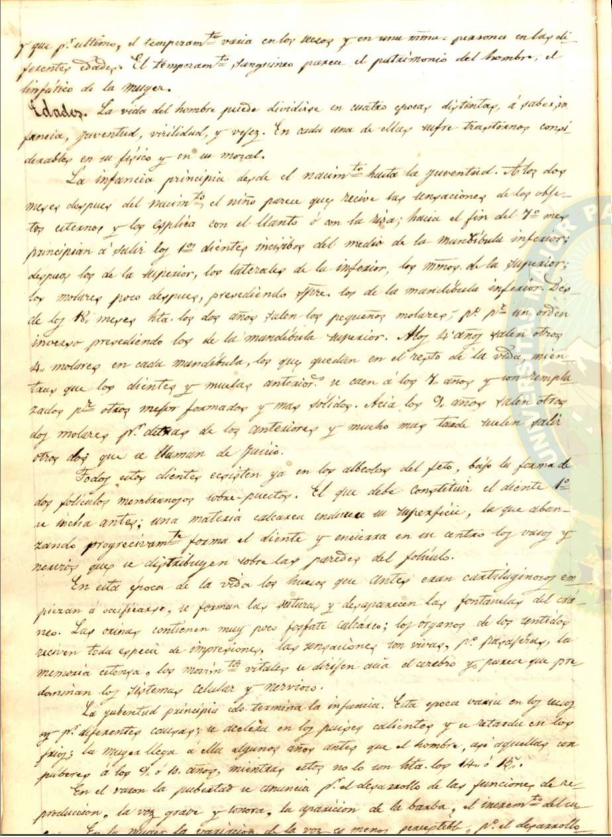 y que pr. ultimo, el temperamto. varia en los sexos y en una mma. persona en las di-
ferentes edades. El temperamto. sanguineo parece el patrimonio del hombre, el
linfático de la muger.
Edades. La vida del hombre puede dividirse en cuatro epocas distintas, á saber, in
fancia, juventud, virilidad, y vejez. En cada una de ellas sufre trastornos consi
derables en su físico y en su moral.
La infancia principia desde el nacimto. hasta la juventud. A los dos
meses despues del nacimto. el niño parece que recive las sensaciones de los obje-
tos esternos y los esplica con el llanto ó con la risa; hacia el fin del 7º mes
principian á salir los 1os dientes incisibos del medio de la mandíbula inferior;
despues los de la superior, los laterales de la inferior, los mmos. de la superior;
los molares poco despues, presediendo spre. los de la mandíbula inferior. Des-
de los 18 meses hta. los dos años salen los pequeños molares; pr. un orden
inverso presediendo los de la mandíbula superior. A los 4 años salen otros
4. molores en cada mandíbula, los que quedan en el resto de la vida, mien
tras que los dientes y muelas anterior.s se caen á los 7 años y son rempla
zados pr. otros mejor formados y mas sólidos. Acia los 9 años salen otros
dos molares pr. detras de los anteriores y mucho mas tarde suelen salir
otros dos que se llaman de juicio.
Todos estos dientes ecsisten ya en los albeolos del feto, bajo la forma de
dos foliculos membranosos sobre-puestos. El que debe constituir el diente 1º
se incha antes; una materia calcarea endurece su superficie, la que aban-
zando progrecivamte. forma el diente y encierra en su centro los vasos y
nervios que se distribuyen sobre las paredes del foliculo.
En esta época de la vida los huesos que antes eran cartilaginosos em
piezan á osificarse, se forman las suturas y desaparecen las fontanelas del crá-
neo. Las orinas contienen muy poco fosfate calcareo; los organos de los sentidos
reciven toda especie de impresiones, las sensaciones son vivas, pr. pasajeras, la
memoria estensa, los movimtos. vitales se dirijen acia el cerebro y parece que pre
dominan los sistemas celular y nervioso.
La jubentud principia do termina la infancia. Esta epoca varia en los sexos
y pr. diferentes causas; se acelera en los paises calientes y se retarda en los
frios; la muger llega á ella algunos años antes que el hombre, asi aquellas son
puberes á los 9 ó 10 años, mientras estos no lo son hta. los 14 ó 15.
En el varon la pubertad se anuncia pr. el desarrollo de las funciones de re-
produccion, la voz grave y sonora, la aparicion de la barba, el incremto. del cu
En la muger la variacion de la voz es menos perceptible, pr. el desarrollo
UNIVERSIDAD MAYOR